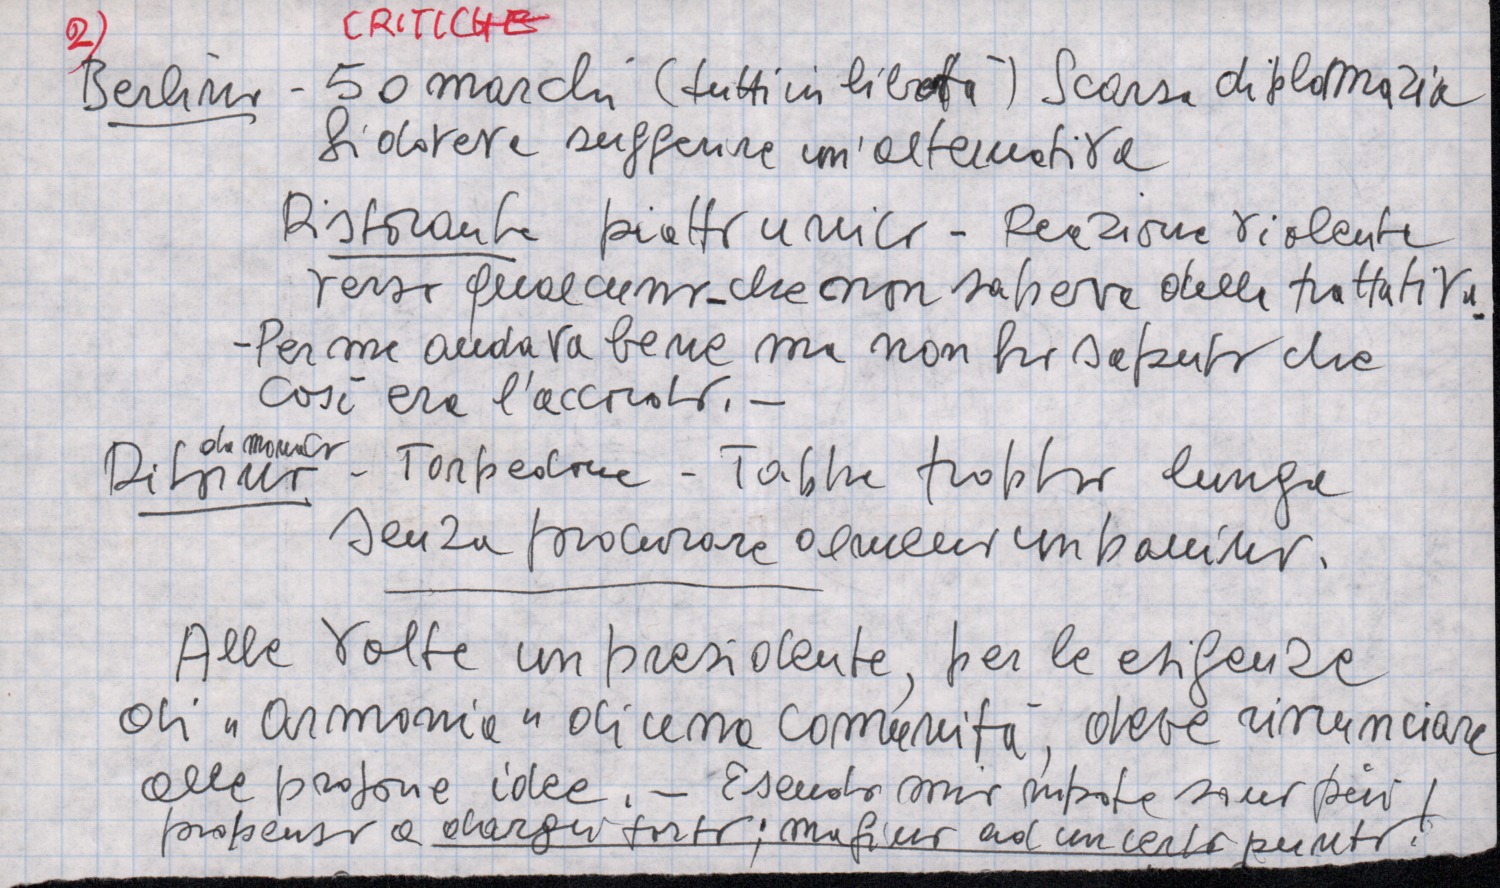 2) CRITICHE
Berlino - 50 marchi (tutti in libertà) Scarsa diplomazia
Si doveva suggerire un'alternativa
Ristorante piatto unico - Reazione violente
verso qualcuno - che non sapeva delle trattative.
- Per me andava bene ma non ho saputo che
così era l'accordo. -
da monaco
Ritorno - Torpedone - Tappa troppo lunga
senza procurare almeno un panino.
Alle volte un presidente, per le esigenze
di "armonia" di una comunità, deve rinunciare
alle proprie idee. - Essendo mio nipote sono più
propenso a dargli torto; ma fino ad un certo punto!